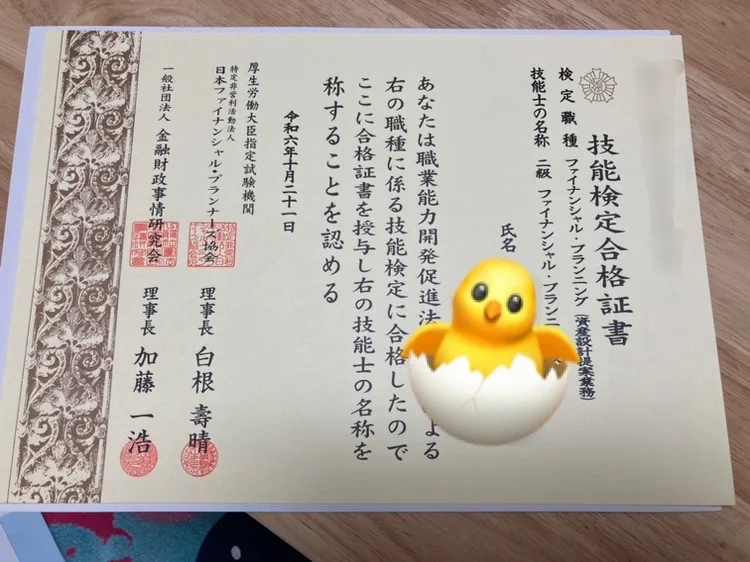 技能検定合格証書
検定職種 ファイナンシャル・プランニング(資産設計提案業務)
技能士の名称 二級 ファイナンシャル・プランニ
氏名
あなたは職業能力開発促進法 よる
右の職種に係る技能検定に合格したので
ここに合格証書を授与し右の技能士の名称を
称することを認める
令和六年十月二十一日
厚生労働大臣指定試験機関
特定非営利活動法人
日本ファイナンシャル・プランナーズ協会
理事長 白根 壽晴
一般社団法人 金融財政事情研究会
理事長 加藤 一浩